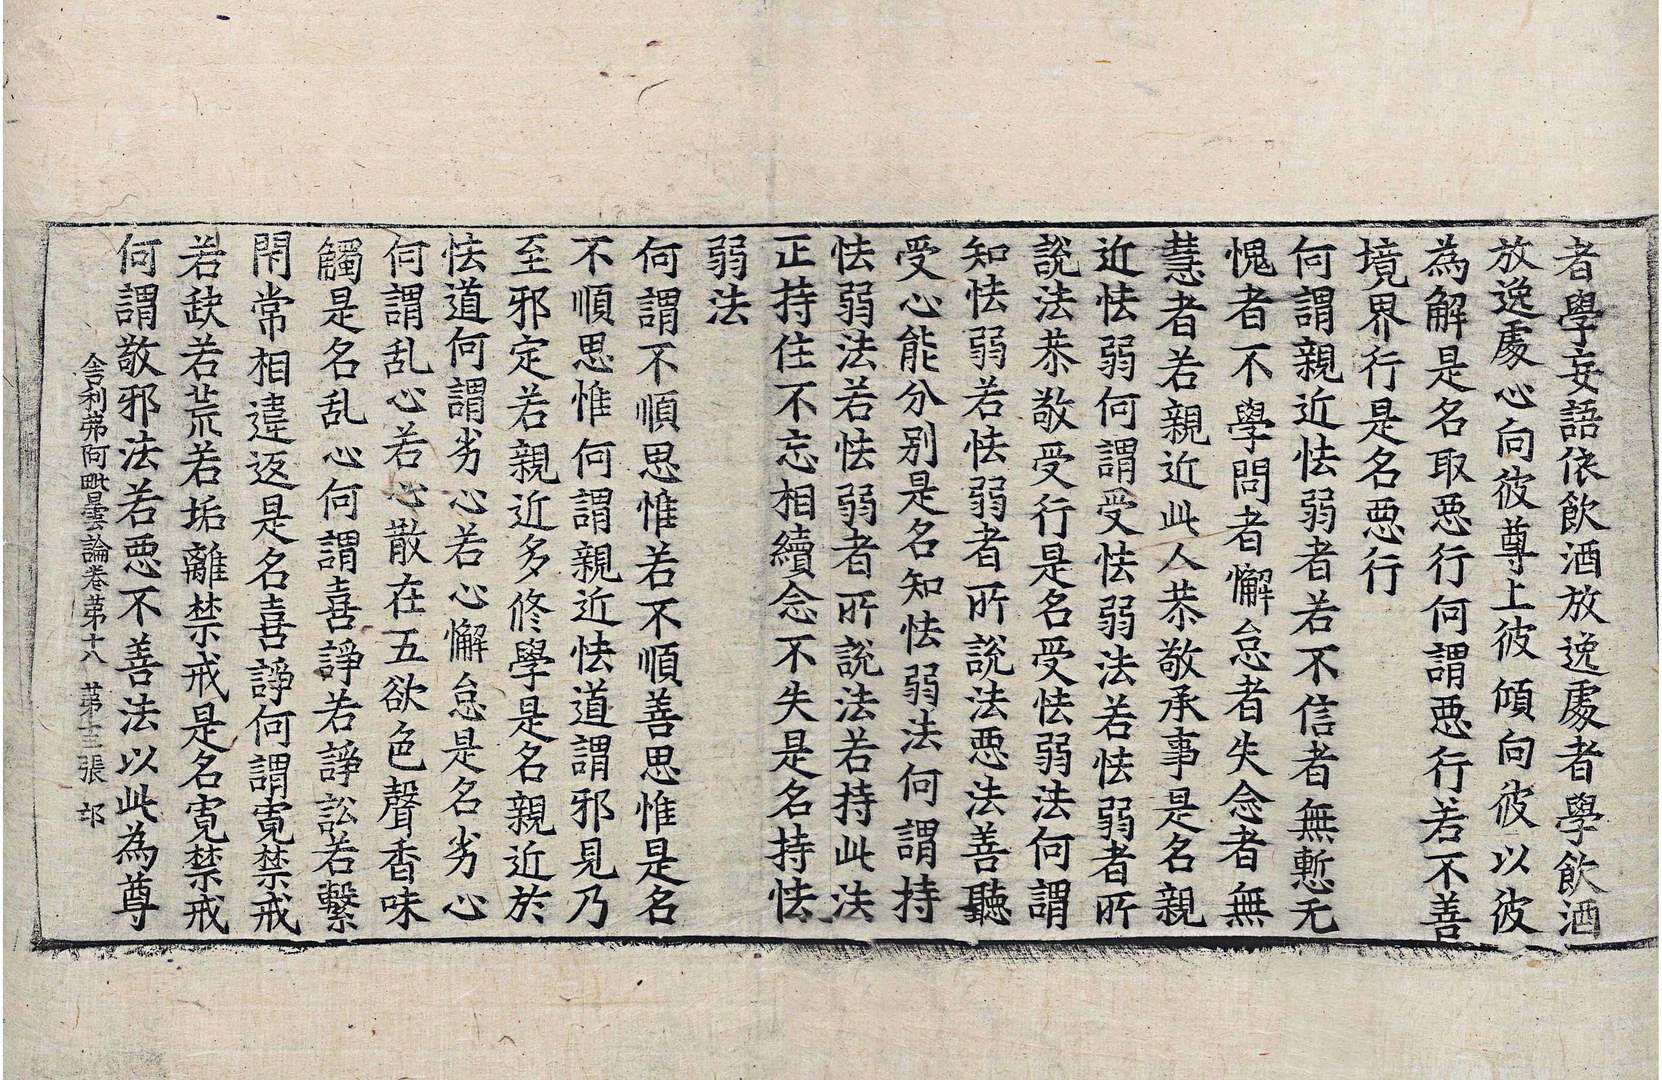 者學妄語依飲酒放逸處者學飲酒
放逸處心向彼尊上彼傾向彼以彼
為解是名取惡行何謂惡行若不善
境界行是名惡行
何謂親近怯弱者若不信者無慙无
愧者不學問者懈怠者失念者無
慧者若親近此人恭敬承事是名親
近怯弱何謂受怯弱法若怯弱者所
說法恭敬受行是名受怯弱法何謂
知怯弱若怯弱者所說法惡法善聽
受心能分别是名知怯弱法何謂持
怯弱法若怯弱者所說法若持此法
正持住不忘相續念不失是名持怯
弱法
何謂不順思惟若不順善思惟是名
不順思惟何謂親近怯道謂邪見乃
至邪定若親近多修學是名親近於
怯道何謂劣心若心懈怠是名劣心
何謂乱心若心散在五欲色聲香味
觸是名乱心何謂喜諍若諍訟若繫
閇常相違返是名喜諍何謂寬禁戒
若缺若荒若垢離禁戒是名寬禁戒
何謂敬邪法若惡不善法以此為尊
舍利弗阿毗曇論卷苐十八 苐十三張 䢴